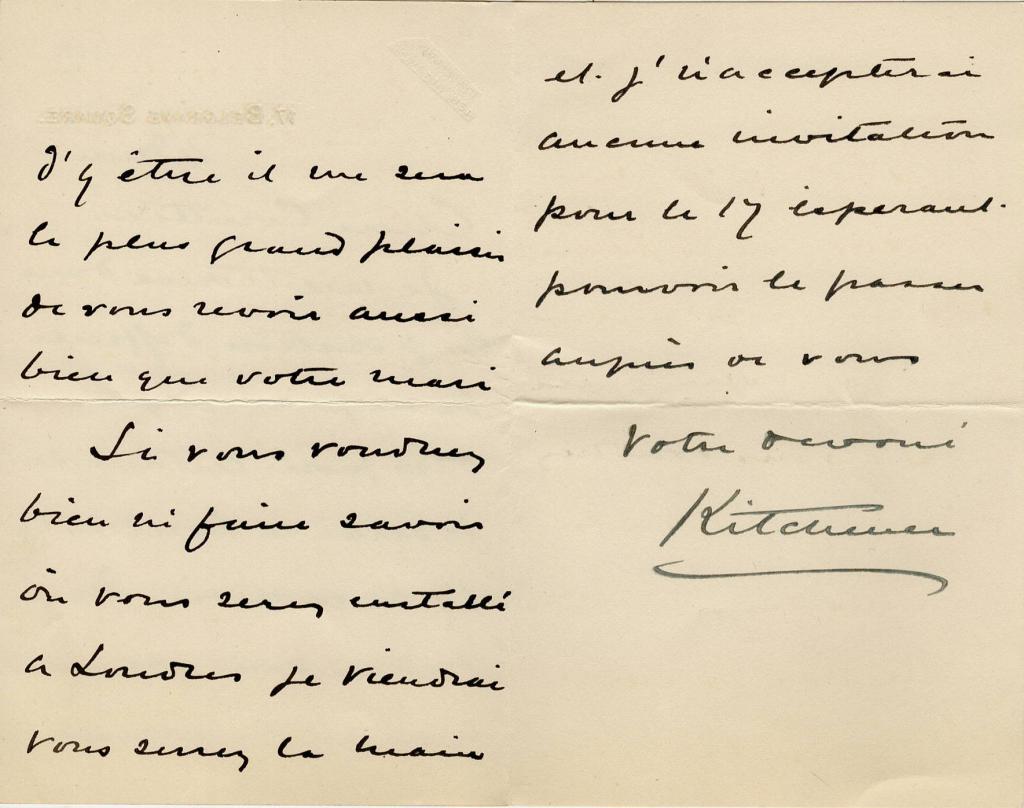 17, BELGRAVE SQUARE.
d'y être il me sera
le plus grand plaisir
de vous revoir aussi
bien que votre mari
Si vous voudrez
bien me faire savoir
où vous serez installé
a Londres je viendrai
vous serrez la main
et j'n'accepterai
aucune invitation
pour le 17 esperant
pouvoir le passer
auprès de vous
Votre devoué
Kitchener